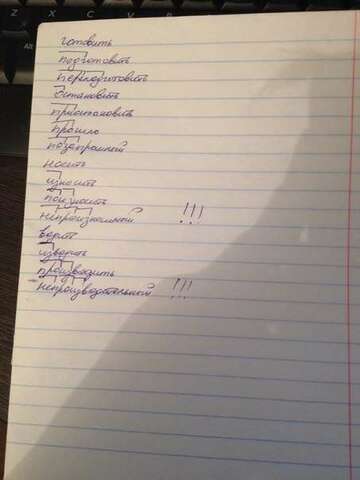 Alt
готовить
подготовить
переподготовить
остановить
приостановить
прошло
позапрошлый
носить
износить
поизносить
непроизносимый !!!
водить
изводить
производить
непроизводительный !!!